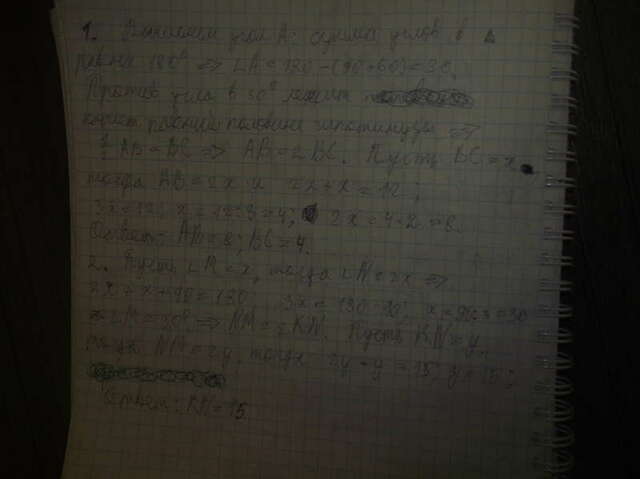 1. Вычислим угол A: сумма углов в Δ
равна 180° ⇒ ∠A = 180 - (90+60) = 30.
Против угла в 30° лежит
катет равный половине гипотенузы ⇒
½ AB = BC ⇒ AB = 2BC. Пусть BC = x
тогда AB = 2x и 2x + x = 12;
3x = 12; x = 12:3 = 4; 2x = 4·2 = 8.
Ответ: AB = 8; BC = 4.
2. Пусть ∠M = x, тогда ∠N = 2x ⇒
2x + x + 90 = 180; 3x = 180-90; x = 90:3 = 30
⇒ ∠M = 30° ⇒ NM = 2KN. Пусть KN = y,
тогда NM = 2y, тогда 2y - y = 15, y = 15;
Ответ: KN = 15.